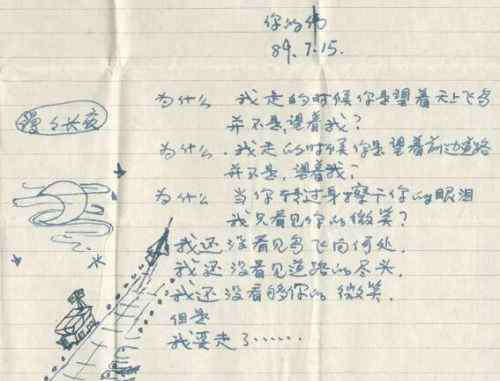 你的伟
89.7.15.
漫漫长夜
为什么 我走的时候你是望着天上飞鸟
并不是,望着我?
为什么.我走的时候你是望着前边道路
并不是,望着我?
为什么 当你转过身擦干你的眼泪
我只看见你的微笑?
我还没看见鸟飞向何处.
我还没看见道路的尽头.
我还没看够你的微笑.
但是
我要走了……